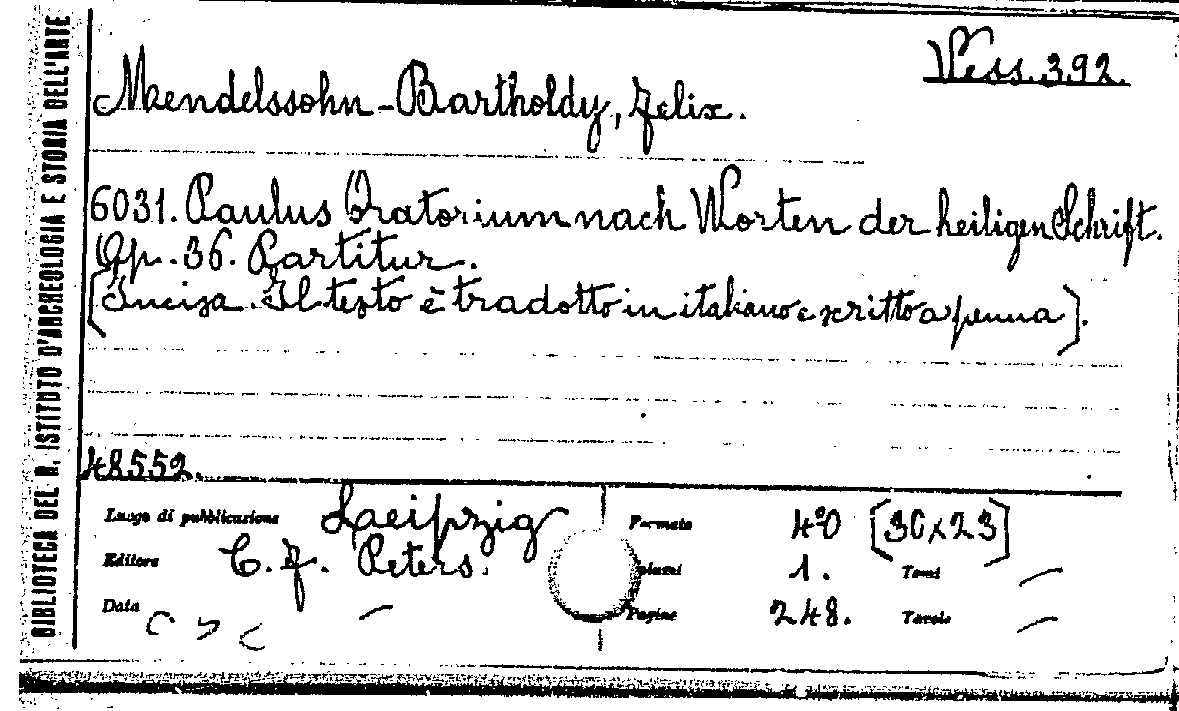 BIBLIOTECA DEL R. ISTITUTO D'ARCHEOLOGIA E STORIA DELL'ARTE
Vess. 392.
Mendelssohn-Bartholdy, Felix.
6031. Paulus Oratorium nach Worten der heiligen Schrift.
Op. 36. Partitur.
[Incisa. Il testo è tradotto in italiano e scritto a penna].
48552.
Luogo di pubblicazione Leipzig Formato 4º0 [30x23]
Editore C. F. Peters. 1. Tomi —
Data — Pagine 248. Tavole —